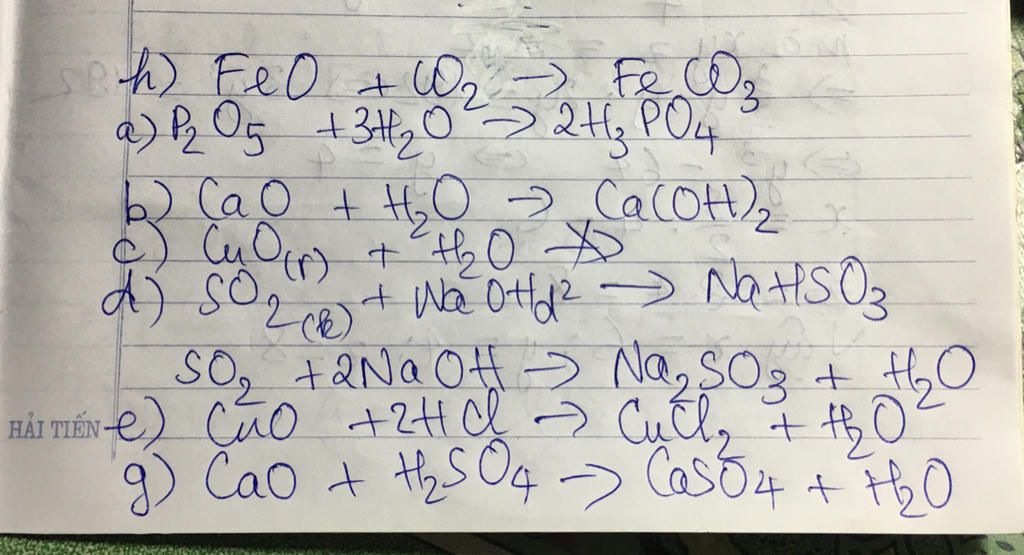 h) FeO + CO₂ → FeCO₃
a) P₂O₅ + 3H₂O → 2H₃PO₄
b) CaO + H₂O → Ca(OH)₂
c) CuO(r) + H₂O ↛
d) SO₂(k) + NaOHd² → NaHSO₃
SO₂ + 2NaOH → Na₂SO₃ + H₂O
HẢI TIẾN e) CuO + 2HCl → CuCl₂ + H₂O
g) CaO + H₂SO₄ → CaSO₄ + H₂O